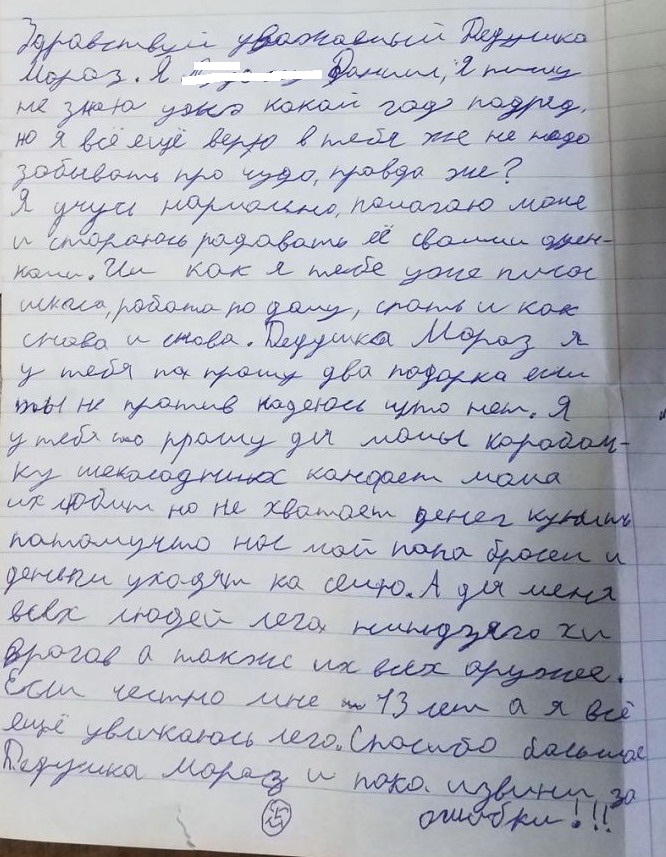 Здравствуй уважаемый Дедушка
Мораз. Я Даниил, Я пишу
не знаю уже какой год подред,
но я всё ещё верю в тебя же не надо
забывать про чудо, правда же?
Я учусь нармально, помагаю маме
и стораюсь радавать её своими оцен-
ками. Ии как я тебе уже писал
шкала, работа по даму, спать и как
снова и снова. Дедушка Мораз я
у тебя па прашу два подарка если
ты не против надеюсь што нет. Я
у тебя прашу для мамы карабач-
ку шекаладных канфет мама
их любит но не хватает денег купить
патамучто нас мой папа бросил и
деньги уходят на семю. А для меня
всех людей лего ниндзяго и
врагов а также их всех аружее.
Если честно мне 13 лет а я всё
ещё увликаюсь лего. Спасибо большое
Дедушка Мораз и пока извини за
ошибки!!!